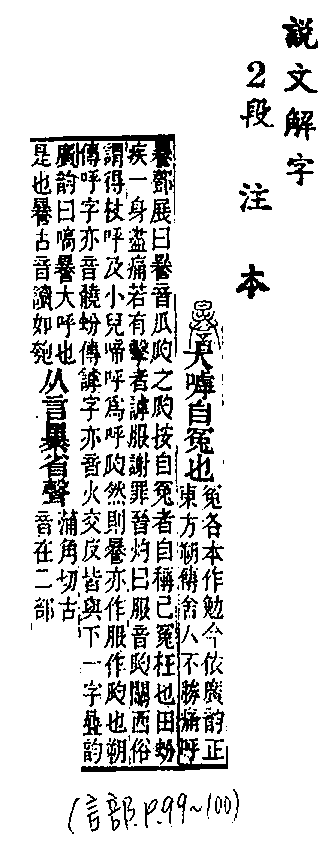 說文解字
2段注本
大嘑自冤也
冤各本作勉今依廣韵正
東方朔傳舍人不勝痛呼
謈鄧展曰謈音瓜瓝之瓝按自冤者自稱己冤枉也田蚡
疾一身盡痛若有擊者謼服謝罪晉灼曰服音瓝關西俗
謂得杖呼及小兒啼呼爲呼瓝然則謈亦作服作瓝也朔
傳呼字亦音髐蚡傳謼字亦音火交反皆與下一字疊韵
廣韵曰嗃謈大呼也
是也謈古音讀如兒
从言㬥省聲
蒲角切古
音在二部
(言部.P.99~100)